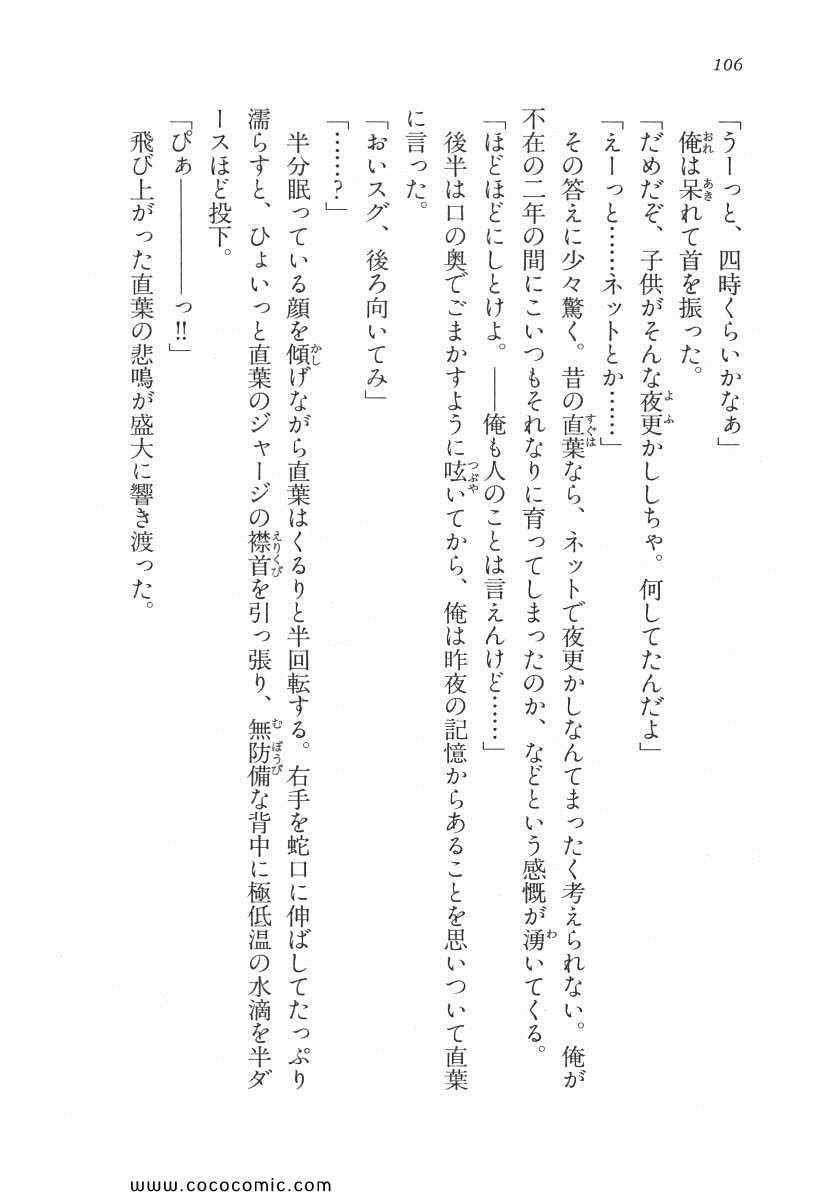 106
「うーっと、四時くらいかなぁ」
俺は呆れて首を振った。
「だめだぞ、子供がそんな夜更かししちゃ。何してたんだよ」
「えーっと……ネットとか……」
その答えに少々驚く。昔の直葉なら、ネットで夜更かしなんてまったく考えられない。俺が
不在の二年の間にこいつもそれなりに育ってしまったのか、などという感慨が湧いてくる。
「ほどほどにしとけよ。——俺も人のことは言えんけど……」
後半は口の奥でごまかすように呟いてから、俺は昨夜の記憶からあることを思いついて直葉
に言った。
「おいスグ、後ろ向いてみ」
「……？」
半分眠っている顔を傾げながら直葉はくるりと半回転する。右手を蛇口に伸ばしてたっぷり
濡らすと、ひょいっと直葉のジャージの襟首を引っ張り、無防備な背中に極低温の水滴を半ダ
ースほど投下。
「ぴぁ————っ!!」
飛び上がった直葉の悲鳴が盛大に響き渡った。
www.cococomic.com